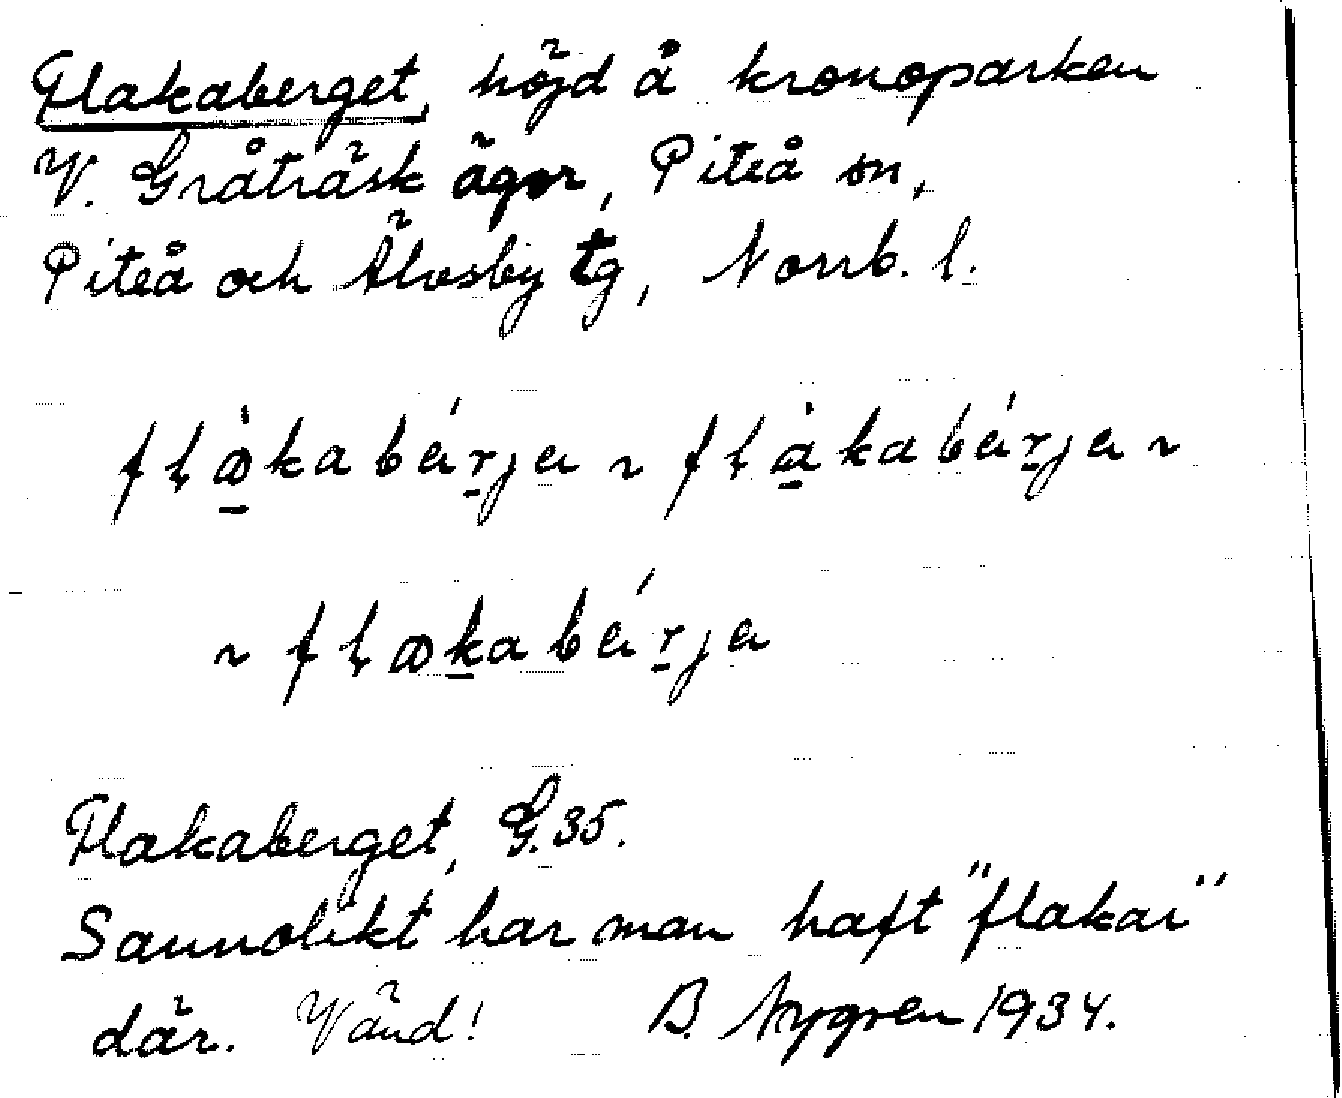 Flakaberget, höjd å kronoparken
V. Gråträsk ägor, Piteå sn,
Piteå och Älvsby tg, Norrb. l.
flɑ̀kabérja ~ flàkabérja ~
~ flɑkabérja
Flakaberget, G.35.
Sannolikt har man haft "flakar"
där. Vänd! B. Nygren 1934.